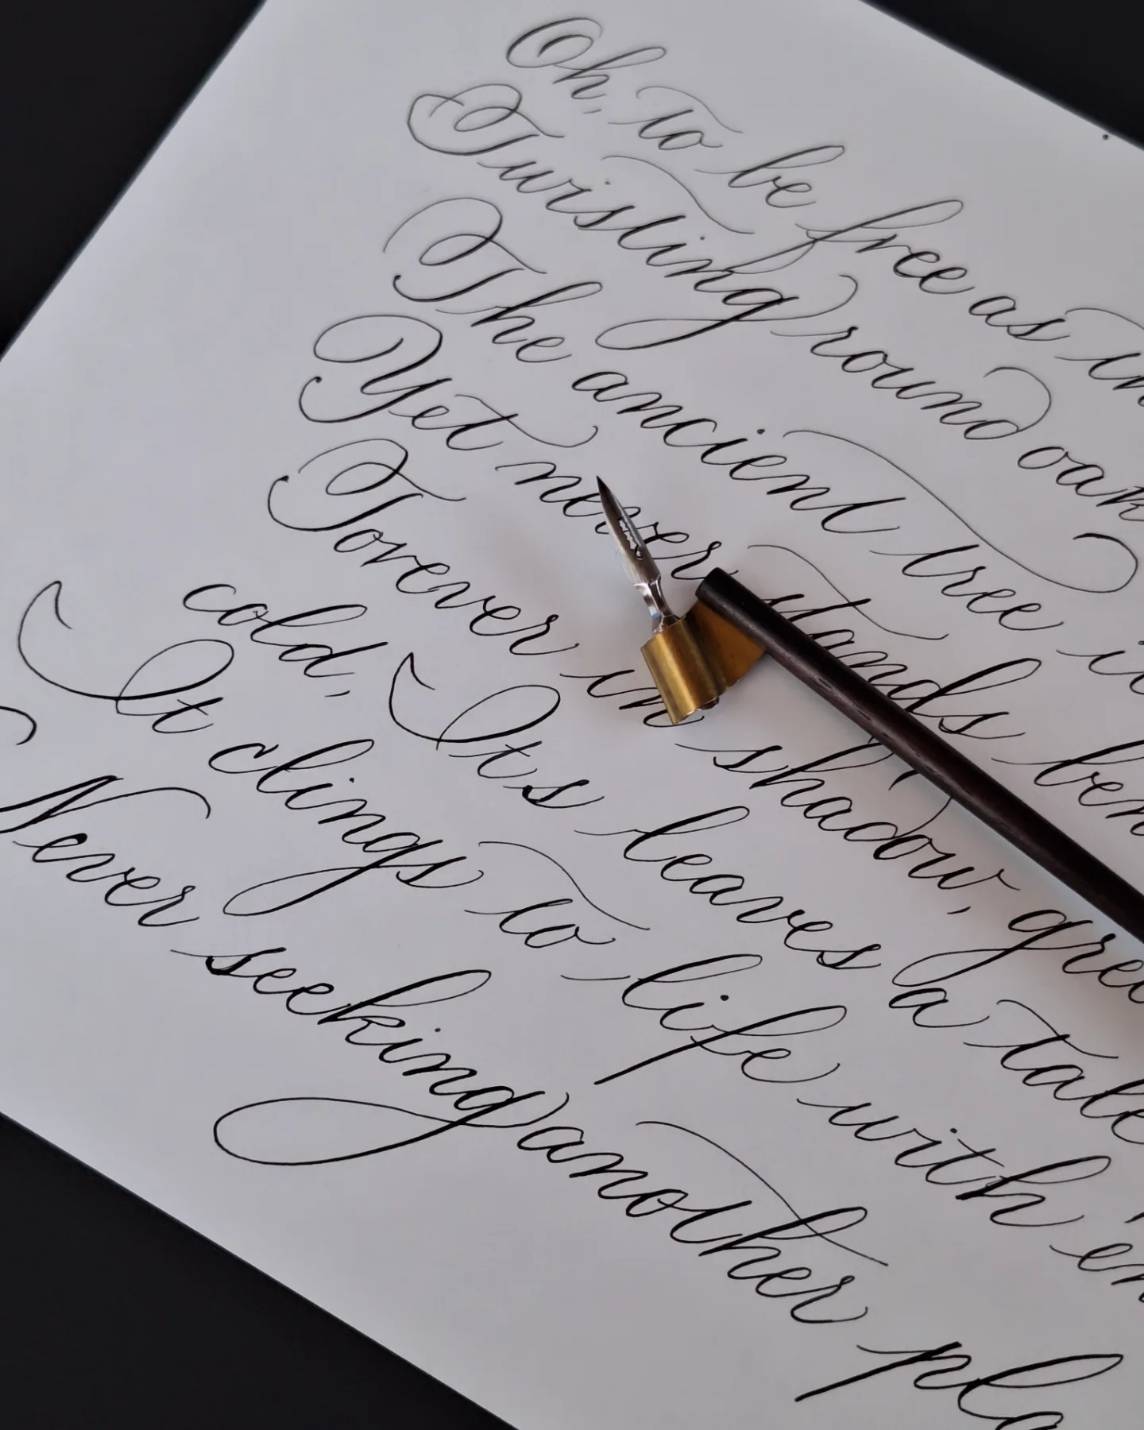 Oh, to be free as
Twisting round oak
The ancient tree
Yet never stands
Forever in shadow,
cold, Its leaves a tale
It clings to life with
Never seeking another